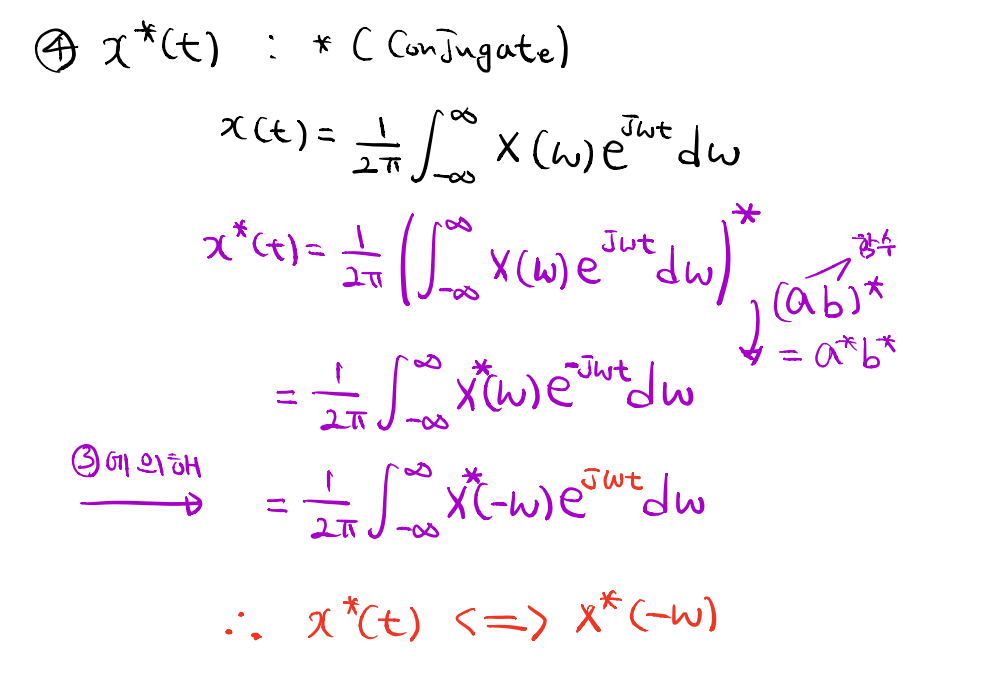 ④ x*(t) : * (Conjugate)
x(t) = 1/2π ∫_{-∞}^{∞} X(w) e^{jwt} dw
x*(t) = 1/2π ( ∫_{-∞}^{∞} X(w) e^{jwt} dw )*
함수
(ab)*
= a*b*
= 1/2π ∫_{-∞}^{∞} X*(w) e^{-jwt} dw
③에 의해 → = 1/2π ∫_{-∞}^{∞} X*(-w) e^{jwt} dw
∴ x*(t) <=> X*(-w)